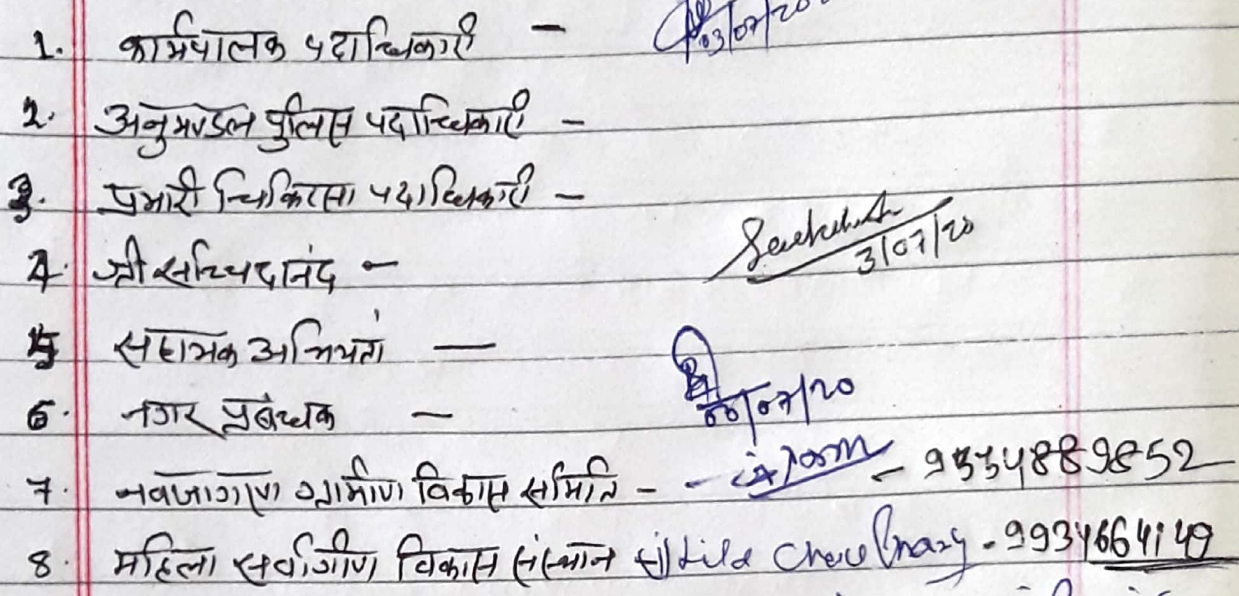 1. कार्यपालक पदाधिकारी - 03/07/20
2. अनुमण्डल पुलिस पदाधिकारी -
3. प्रभारी चिकित्सा पदाधिकारी -
4. श्री सच्चिदानंद - 3/07/20
5 सहायक अभियंता -
6. नगर प्रबंधक - /07/20
7. नवजागरण ग्रामीण विकास समिति - - 9334889852
8. महिला सर्वांगीण विकास संस्थान Choudhary - 9934664149